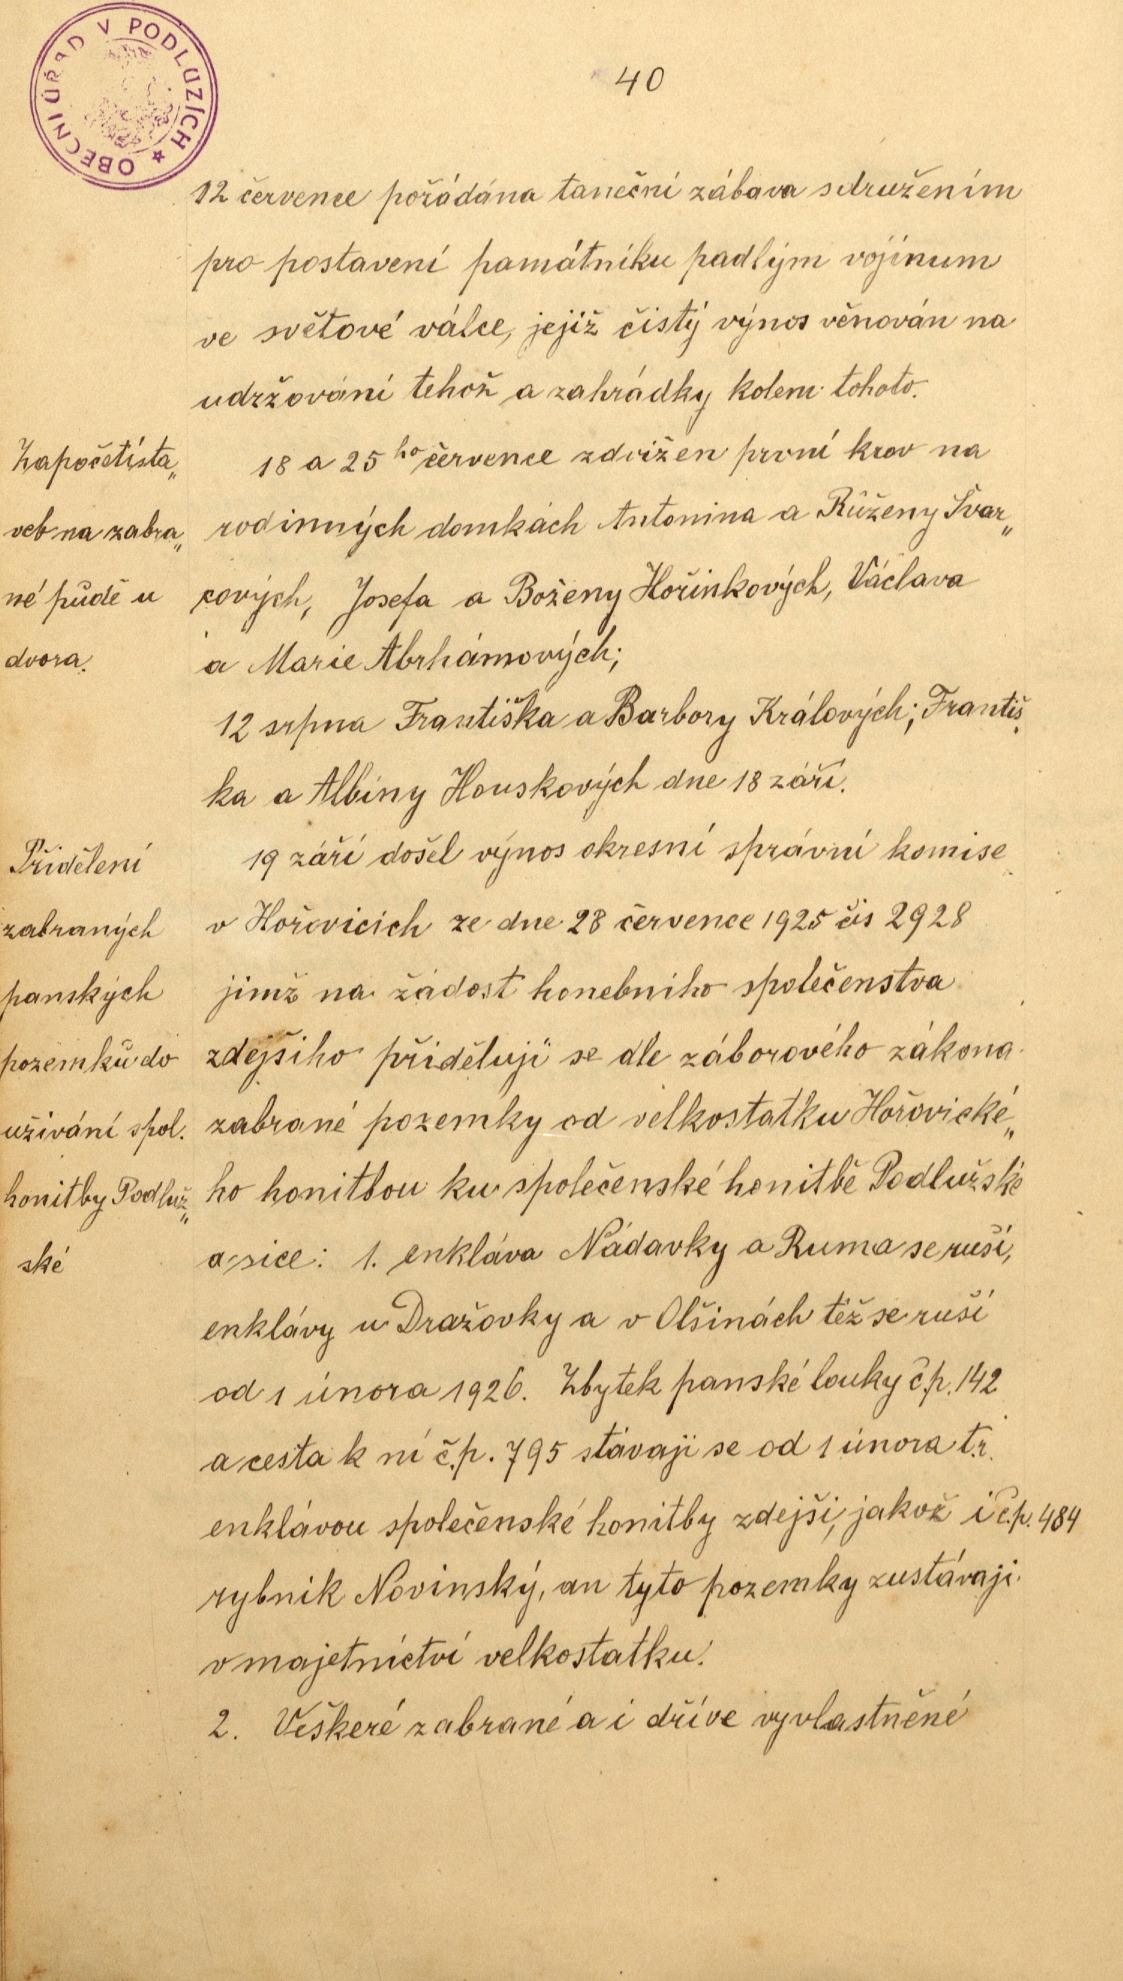 OBECNÍ ÚŘAD V PODLUZÍCH
40
12 července pořádána taneční zábava sdružením
pro postavení památníku padlým vojínum
ve světové válce, jejiž čistý výnos věnován na
udržování tehož a zahrádky kolem tohoto.
Započetísta„
veb na zabra„
né půdě u
dvora.
18 a 25ho července zdvižen první krov na
rodinných domkách Antonina a Růženy Švar„
cových, Josefa a Boženy Hořinkových, Václava
a Marie Abrhámových;
12 srpna Františka a Barbory Králových; Františ„
ka a Albiny Houskových dne 18 září.
Přidělení
zabraných
panských
pozemků do
užívání spol.
honitby Podluž„
ské
19 září došel výnos okresní správní komise
v Hořovicích ze dne 28 července 1925 čis 2928
jimž na žádost honebniho společenstva
zdejšiho přiděluji se dle záborového zákona
zabrané pozemky od velkostatku Hořovické„
ho honitbou ku společenské honitbě Podlužské
a sice: 1. enkláva Nádavky a Ruma se ruší,
enklávy u Dražovky a v Olšinách též se ruší
od 1 února 1926. Zbytek panské louky č.p. 142
a cesta k ní č.p. 795 stávaji se od 1 února t.r.
enklávou společenské honitby zdejši, jakož i č.p. 484
rybnik Novinský, an tyto pozemky zustávaji
v majetnictví velkostatku.
2. Veškeré zabrané a i dříve vyvlastněné